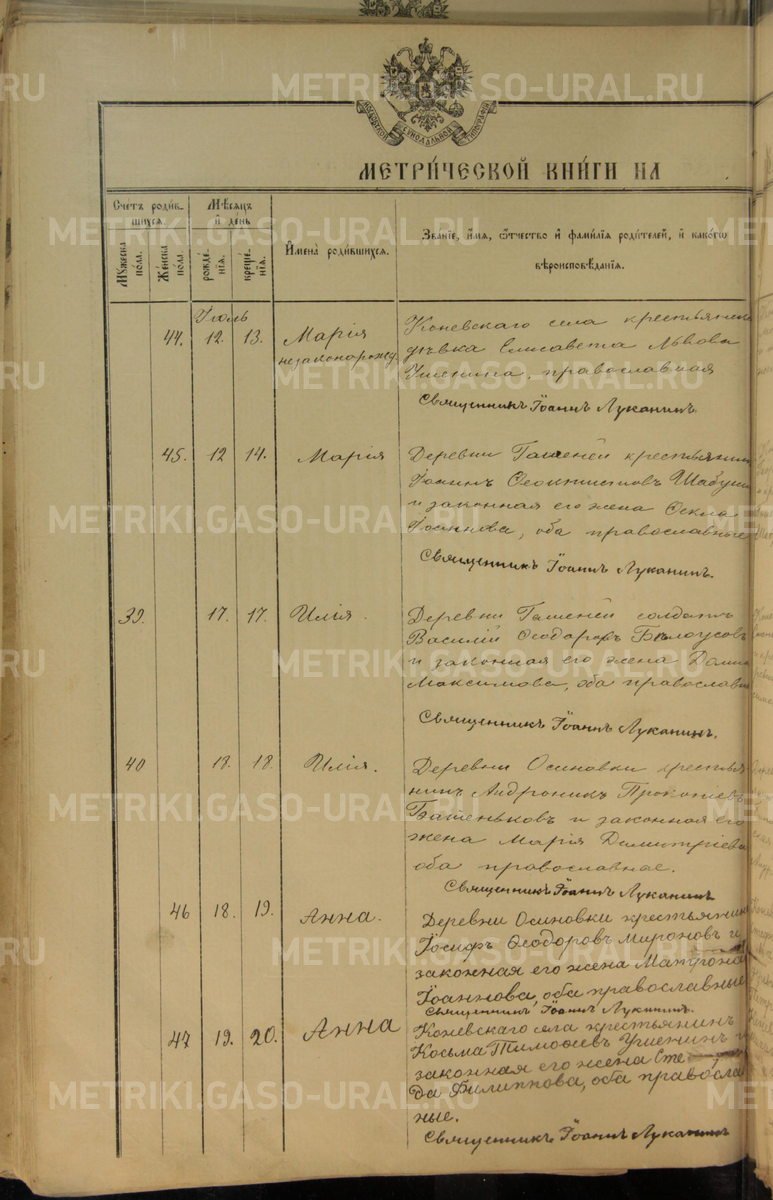 МОСКОВСКОЙ СѴНОДАЛЬНОЙ ТИПОГРАФІИ
МЕТРИ́ЧЕСКОЙ КНИ́ГИ НА
Счетъ роди́в-
шихся.
Мꙋ́жеска
пола.
Же́нска
пола.
Мѣ́сяцъ
и҆ день
рожде́-
нїя.
креще́-
нїя.
И҆мена̀ роди́вшихся.
Зва́нїе, и҆́мя, ѻ҆́тчество и҆ фами́лїя роди́телей, и҆ како́гѡ
вѣроисповѣ́данїя.
Іюль
44. 12. 13. Марія
незаконорожд.
Коневскаго села крестьянск
дѣвка Елисавета Львова
православная
Священникъ Іоаннъ Луканинъ.
45. 12 14. Марія
Деревни Гашеней крестьянин
Іоаннъ Феоктистовъ Шабун
и законная его жена Фекла
Іоаннова, оба православные
Священникъ Іоаннъ Луканинъ.
39. 17. 17. Илія.
Деревни Гашеней солдатъ
Василій Феодоровъ Бѣлоусов
и законная его жена Домна
Максимова, оба православн
Священникъ Іоаннъ Луканинъ.
40 18. 18. Илія.
Деревни Осиновки крестья
нинъ Андроникъ Прокопіевъ
и законная его
жена Марія Димитріева
оба православные.
Священникъ Іоаннъ Луканинъ
46 18. 19. Анна.
Деревни Осиновки крестьянин
Іосифъ Феодоровъ Мироновъ и
законная его жена Матрона
Іоаннова, оба православные
Священникъ Іоаннъ Луканинъ.
47 19. 20. Анна
Коневскаго села крестьянинъ
Косьма Тимофеевъ Ушенинъ и
законная его жена Сте
да Филиппова, оба правосла
ные.
Священникъ Іоаннъ Луканинъ
METRIKI.GASO-URAL.RU